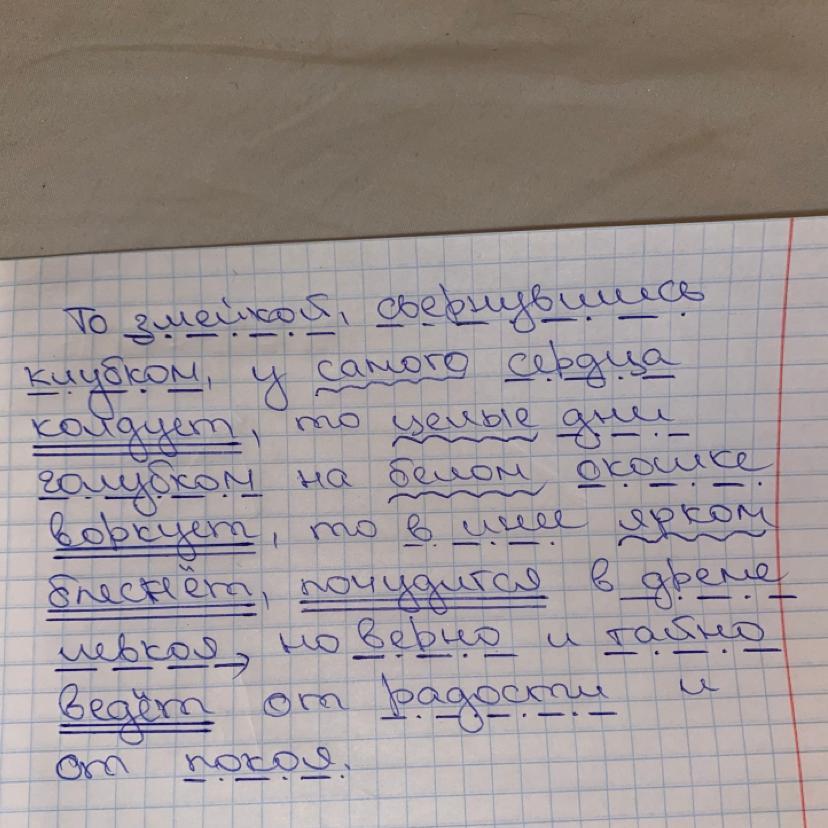 То змейкой, свернувшись
клубком, у самого сердца
колдует, то целые дни
голубком на белом окошке
воркует, то в инее ярком
блеснёт, почудится в дреме
левкоя, но верно и тайно
ведёт от радости и
от покоя.